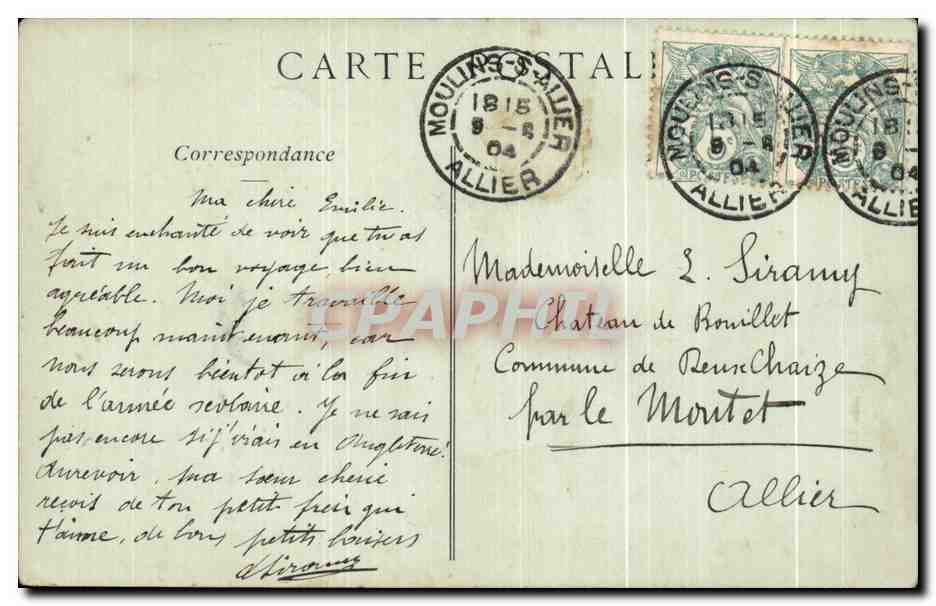 CARTE POSTALE
MOULINS-S-ALLIER
18 15
9 - 8
04
ALLIER
MOULINS-S ALLIER
18 15
8 - 8
04
ALLIER
MOULINS-S
18 1
8
04
ALLIE
POSTES
Correspondance
Ma chère Emilie.
Je suis enchanté de voir que tu as
fait un bon voyage bien
agréable. Moi je travaille
beaucoup maintenant, car
nous serons bientot à la fin
de l'année scolaire. Je ne sais
pas encore si j'irais en Angleterre.
Aurevoir, ma sœur cherie
reçois de ton petit frère qui
t'aime, de bons petits baisers
Mademoiselle E. Siramy
Chateau de Rouillet
Commune de Deux Chaize
par le Montet
Allier
CPAPHIL